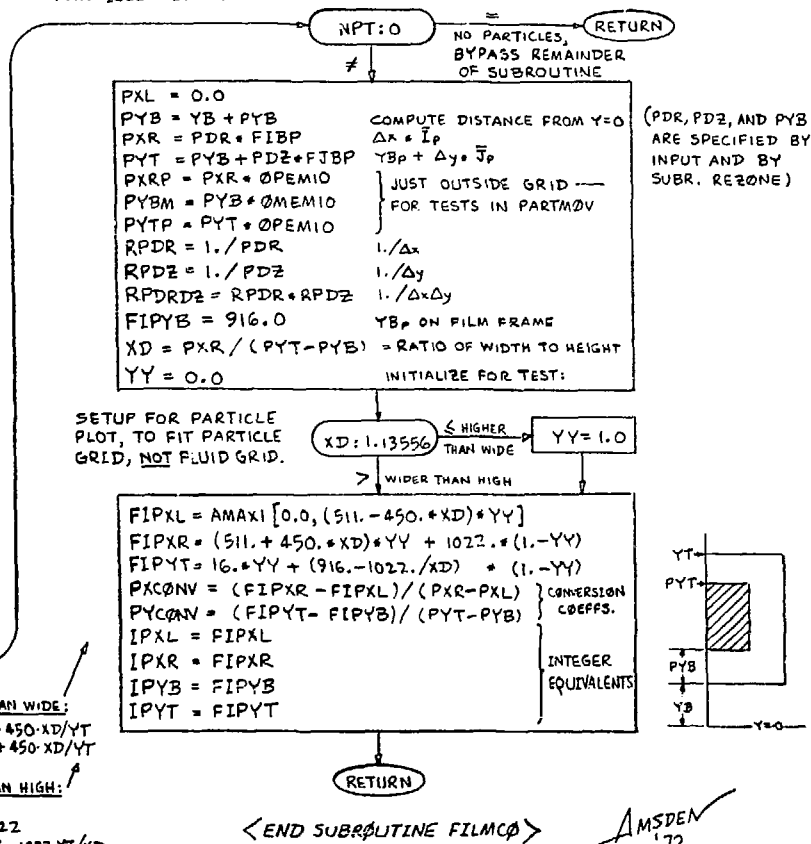 NPT:0
=
NO PARTICLES,
BYPASS REMAINDER
OF SUBROUTINE
RETURN
≠
PXL = 0.0
PYB = YB + PYB COMPUTE DISTANCE FROM Y=0
PXR = PDR * FIBP Δx * I̅p
PYT = PYB + PDZ * FJBP YBp + Δy * J̅p
PXRP = PXR * ØPEM10
PYBM = PYB * ØMEM10
PYTP = PYT * ØPEM10
JUST OUTSIDE GRID —
FOR TESTS IN PARTMØV
RPDR = 1./PDR 1./Δx
RPDZ = 1./PDZ 1./Δy
RPDRDZ = RPDR * RPDZ 1./ΔxΔy
FIPYB = 916.0 YBp ON FILM FRAME
XD = PXR / (PYT-PYB) = RATIO OF WIDTH TO HEIGHT
YY = 0.0 INITIALIZE FOR TEST:
(PDR, PDZ, AND PYB
ARE SPECIFIED BY
INPUT AND BY
SUBR. REZONE)
SETUP FOR PARTICLE
PLOT, TO FIT PARTICLE
GRID, NOT FLUID GRID.
XD : 1.13556
≤ HIGHER
THAN WIDE
YY = 1.0
> WIDER THAN HIGH
FIPXL = AMAX1 [0.0, (511. - 450. * XD) * YY]
FIPXR = (511. + 450. * XD) * YY + 1022. * (1. - YY)
FIPYT = 16. * YY + (916. - 1022. / XD) * (1. - YY)
PXCØNV = (FIPXR - FIPXL) / (PXR - PXL)
PYCØNV = (FIPYT - FIPYB) / (PYT - PYB)
CONVERSION
COEFFS.
IPXL = FIPXL
IPXR = FIPXR
IPYB = FIPYB
IPYT = FIPYT
INTEGER
EQUIVALENTS
YT
PYT
PYB
YB
Y=0
AN WIDE:
450·XD/YT
+ 450·XD/YT
AN HIGH:
22
RETURN
<END SUBRØUTINE FILMCØ>
AMSDEN
'72